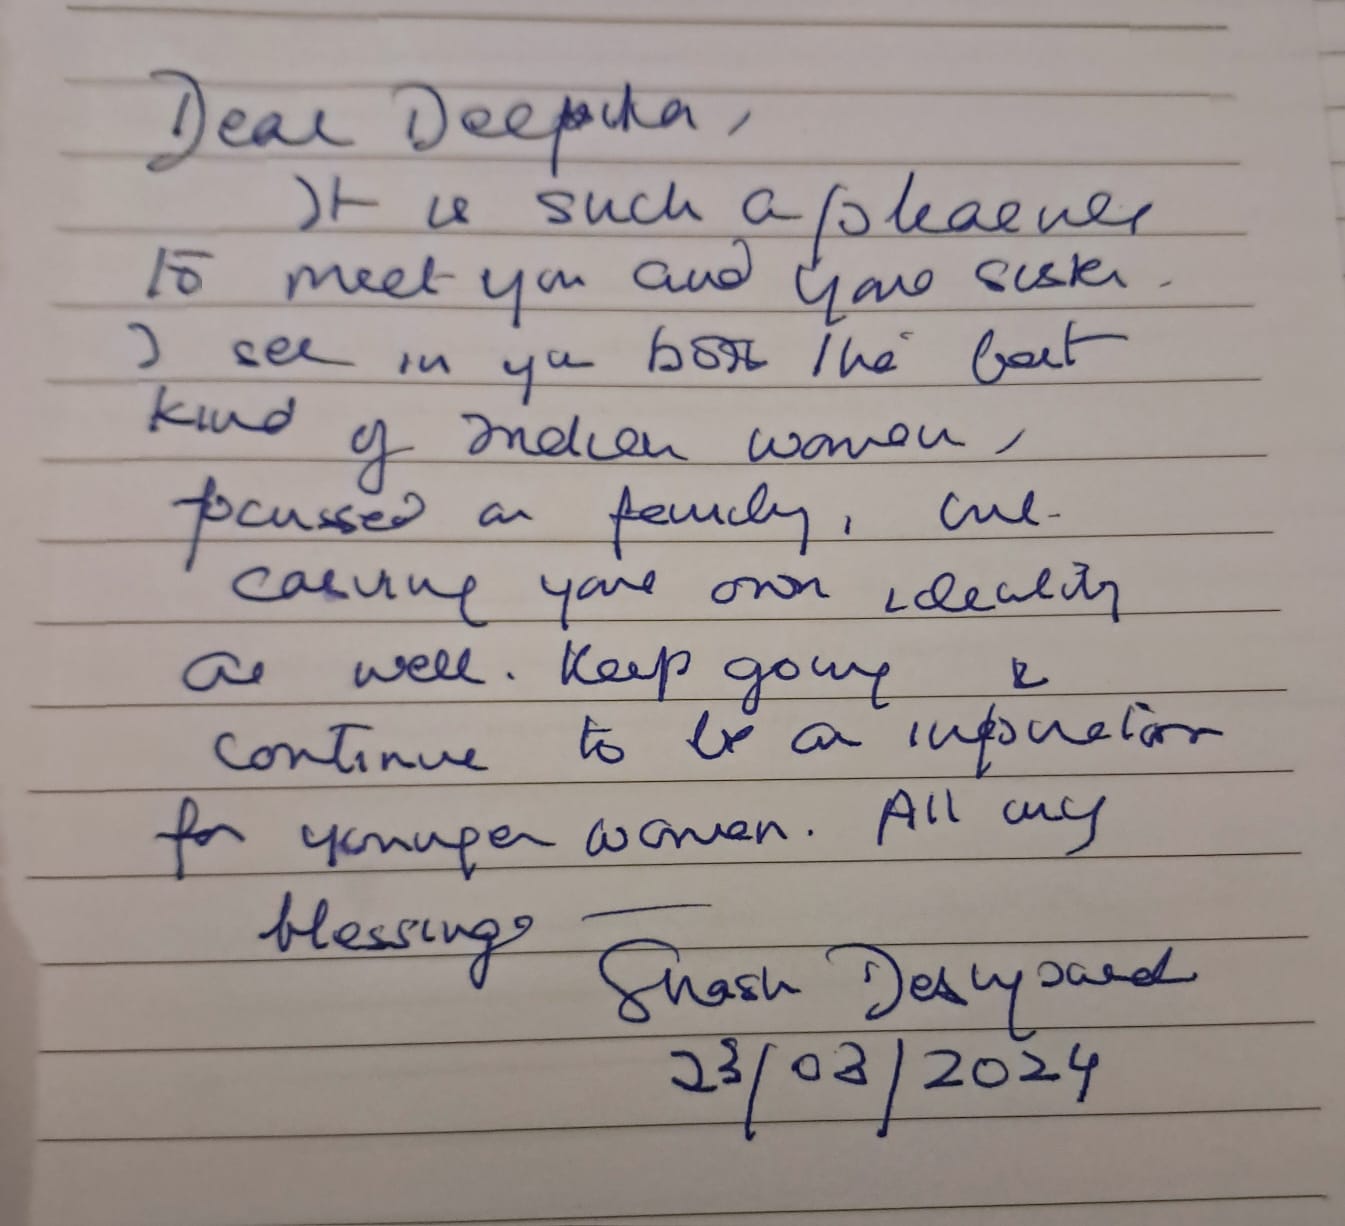 Dear Deepika,
It is such a pleasure
to meet you and your sister.
I see in you both the best
kind of Indian women,
focussed on family, and
carving your own identity
as well. Keep going &
continue to be an inspiration
for younger women. All my
blessings —
Shash Deshpande
23/03/2024